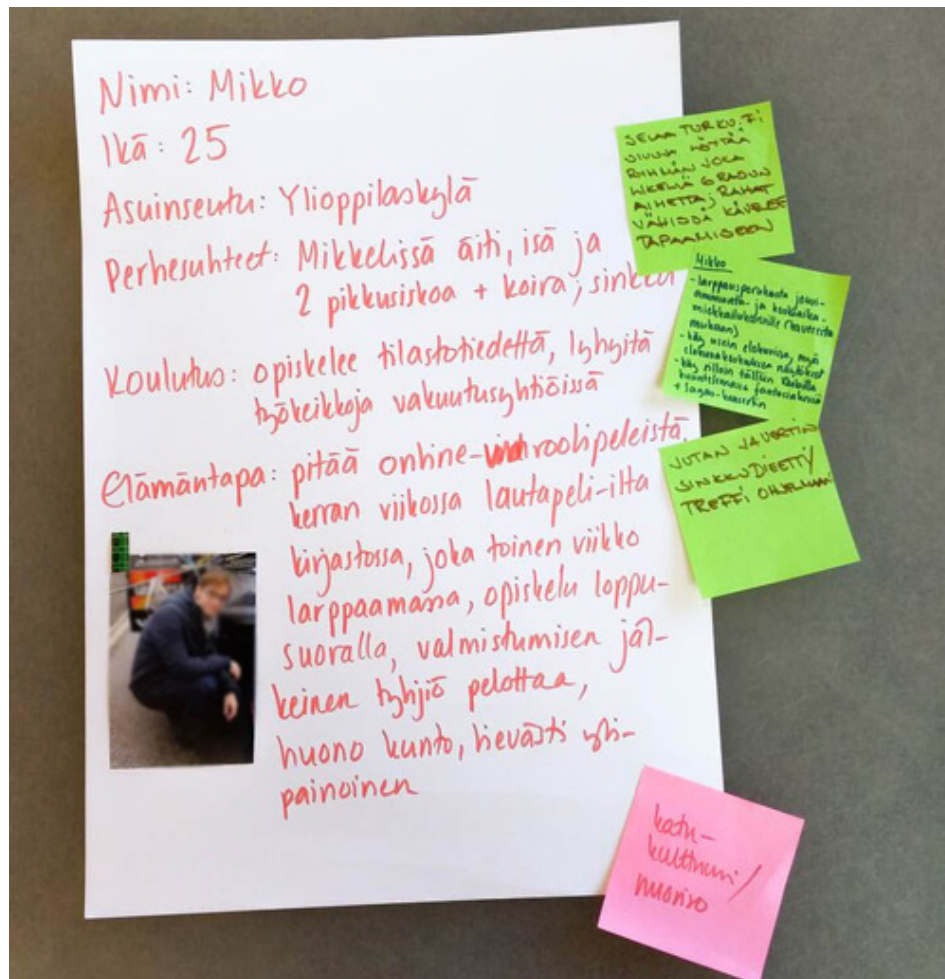 Nimi: Mikko
Ikä: 25
Asuinseutu: Ylioppilaskylä
Perhesuhteet: Mikkelissä äiti, isä ja
2 pikkusiskoa + koira, sinkku
Koulutus: opiskelee tilastotiedettä, lyhyitä
työkeikkoja vakuutusyhtiöissä
Elämäntapa: pitää online-roolipeleistä,
kerran viikossa lautapeli-ilta
kirjastossa, joka toinen viikko
larppaamassa, opiskelu loppu-
suoralla, valmistumisen jäl-
keinen tyhjiö pelottaa,
huono kunto, lievästi yli-
painoinen
SELAA TURKU.FI
SIVUJA LÖYTÄÄ
RYHMÄN JOKA
AIHETTA, RAHAT
VÄHISSÄ KÄVELEE
TAPAAMISEEN
Mikko
- larppausporukasta jousi-
ammunta- ja keskiaika-
miekkailukurssille (kaverita
mukaan)
- käy usein elokuvissa, myös
elokuvakerhon näytökset
- käy silloin tällöin
JUTAN JA VERTIN
SINKKUDIEETTI/
TREFFI OHJELMAAN
katu-
kulttuuri/
nuoriso